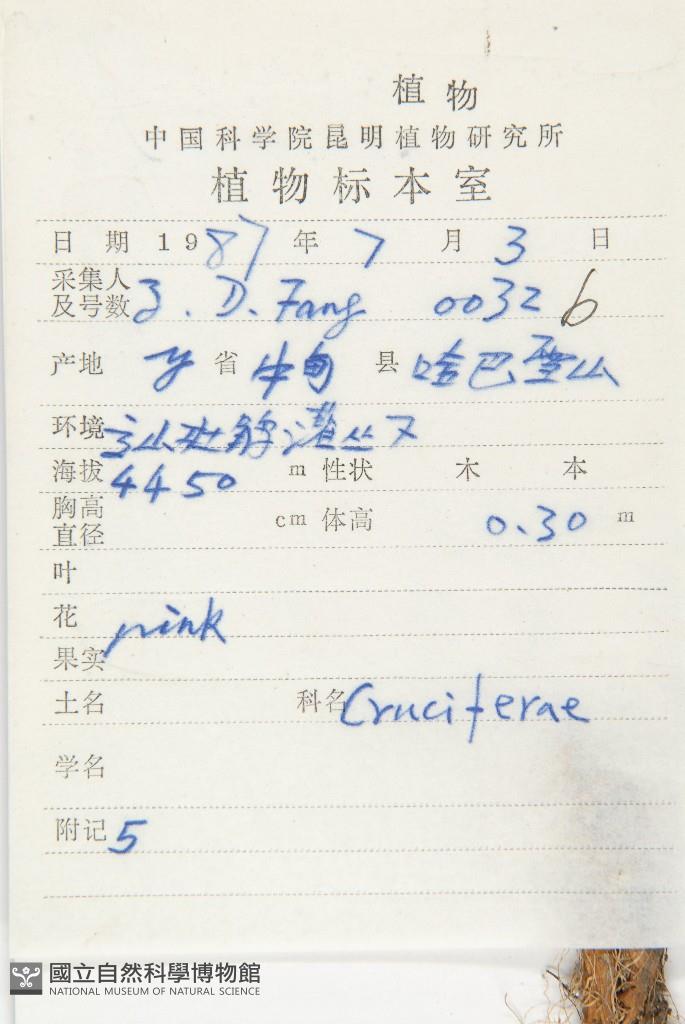 植物
中国科学院昆明植物研究所
植物标本室
日期 1987年 7月 3日
采集人
及号数 Z. D. Fang 00326
产地 Y 省 中甸 县 哈巴雪山
环境 灌丛
海拔 4450 m 性状 木本
胸高
直径 cm 体高 0.30 m
叶
花 pink
果实
土名 科名 Cruciferae
学名
附记 5
國立自然科學博物館
NATIONAL MUSEUM OF NATURAL SCIENCE